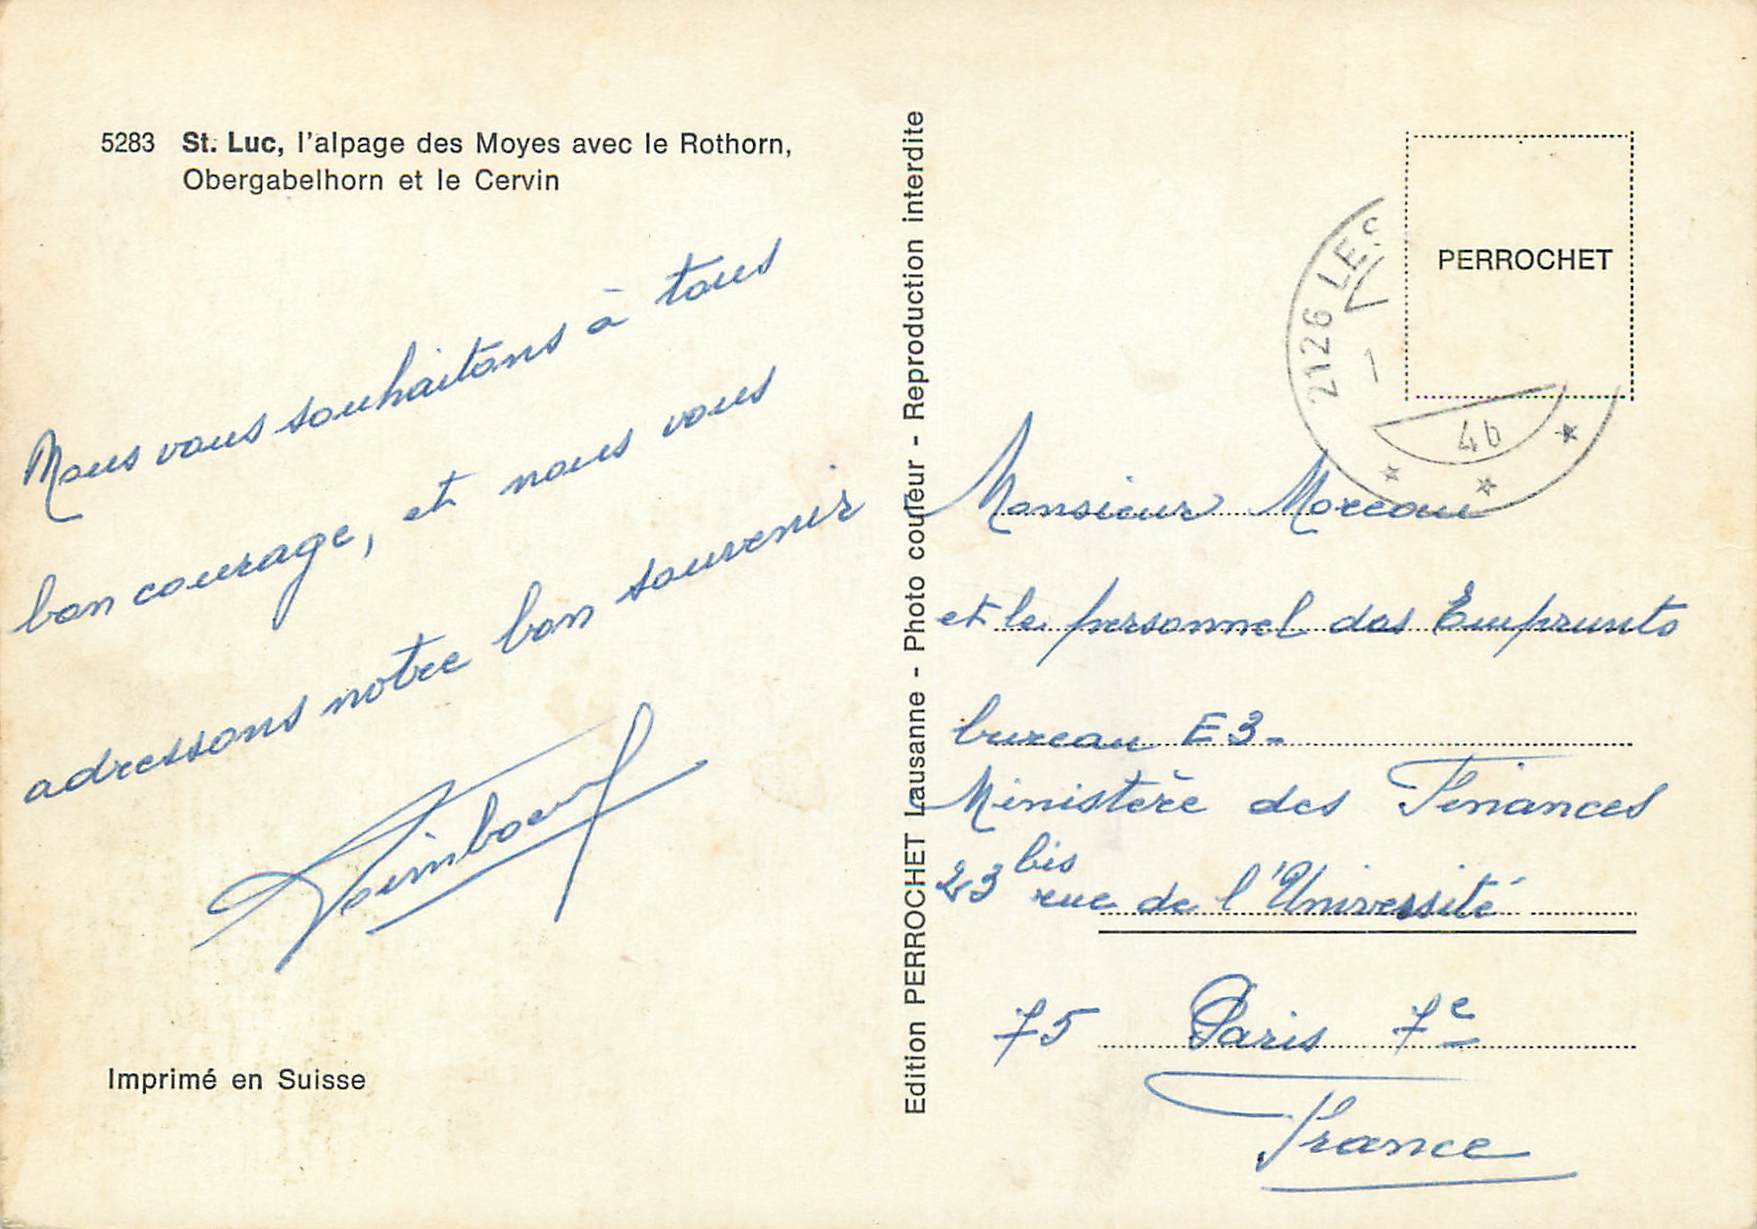 5283 St. Luc, l'alpage des Moyes avec le Rothorn,
Obergabelhorn et le Cervin
Nous vous souhaitons à tous
bon courage, et nous vous
adressons notre bon souvenir
Imprimé en Suisse
Edition PERROCHET Lausanne - Photo couleur - Reproduction interdite
PERROCHET
2126 LES
1
4b
Monsieur Moreau
et le personnel des Emprunts
bureau E3-
Ministère des Finances
23 bis rue de l'Université
75 Paris 7e
France